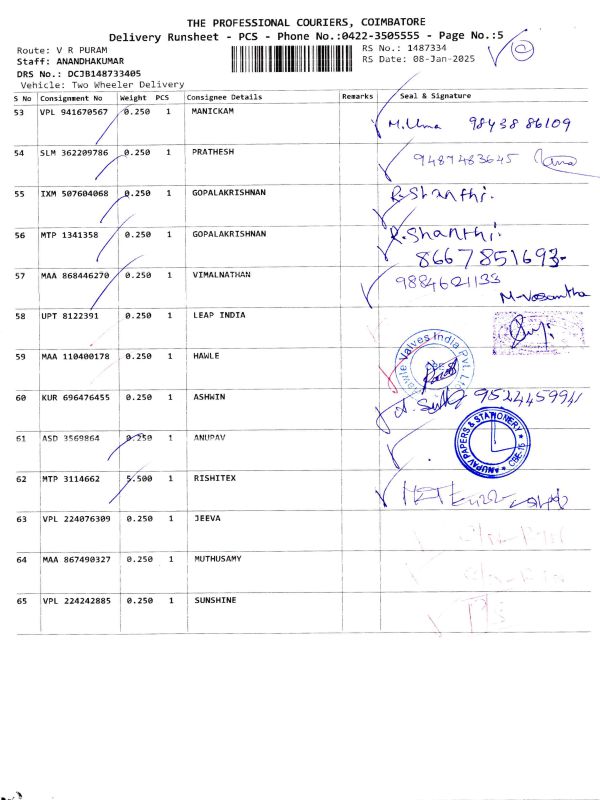 THE PROFESSIONAL COURIERS, COIMBATORE
Delivery Runsheet - PCS - Phone No.:0422-3505555 - Page No.:5
Route: V R PURAM
RS No.: 1487334
Staff: ANANDHAKUMAR
RS Date: 08-Jan-2025
DRS No.: DCJB148733405
Vehicle: Two Wheeler Delivery
S No Consignment No Weight PCS Consignee Details Remarks Seal & Signature
53 VPL 941670567 0.250 1 MANICKAM M.Uma 98438 86109
54 SLM 362209786 0.250 1 PRATHESH 9487483645
55 IXM 507604068 0.250 1 GOPALAKRISHNAN R.Shanthi.
56 MTP 1341358 0.250 1 GOPALAKRISHNAN R.Shanthi.
8667851693-
57 MAA 868446270 0.250 1 VIMALNATHAN 9884621133
M-Vasantha
58 UPT 8122391 0.250 1 LEAP INDIA
59 MAA 110400178 0.250 1 HAWLE Hawle Valves India Pvt. Ltd
60 KUR 696476455 0.250 1 ASHWIN 9524459941
61 ASD 3569864 0.250 1 ANUPAV ANUPAV PAPERS & STATIONERY CBE-15
62 MTP 3114662 5.500 1 RISHITEX
63 VPL 224076309 0.250 1 JEEVA
64 MAA 867490327 0.250 1 MUTHUSAMY
65 VPL 224242885 0.250 1 SUNSHINE